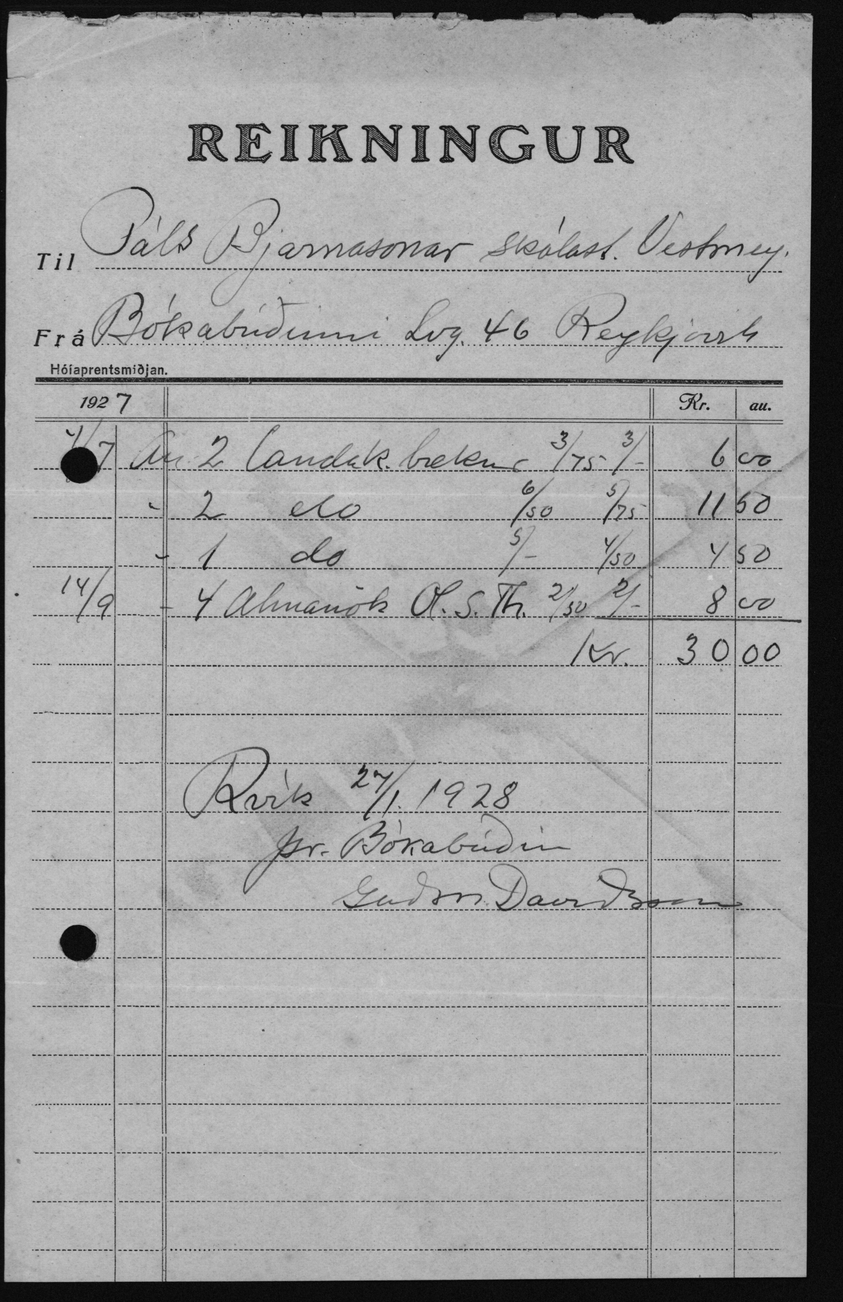 REIKNINGUR
Til Páls Bjarnasonar skólast. Vestmey.
Frá Bókabúðinni Lvg. 46 Reykjavík
Hólaprentsmiðjan.
1927 Kr. au.
/7 An 2 landak. bækur 3/75 3/- 6 00
- 2 do 6/50 5/75 11 50
- 1 do 5/- 4/50 4 50
14/9 - 4 Almanök Ó. S. Th. 2/50 2/- 8 00
Kr. 30 00
Rvík 27/1. 1928
pr. Bókabúðin
Guðm. Davíðsson